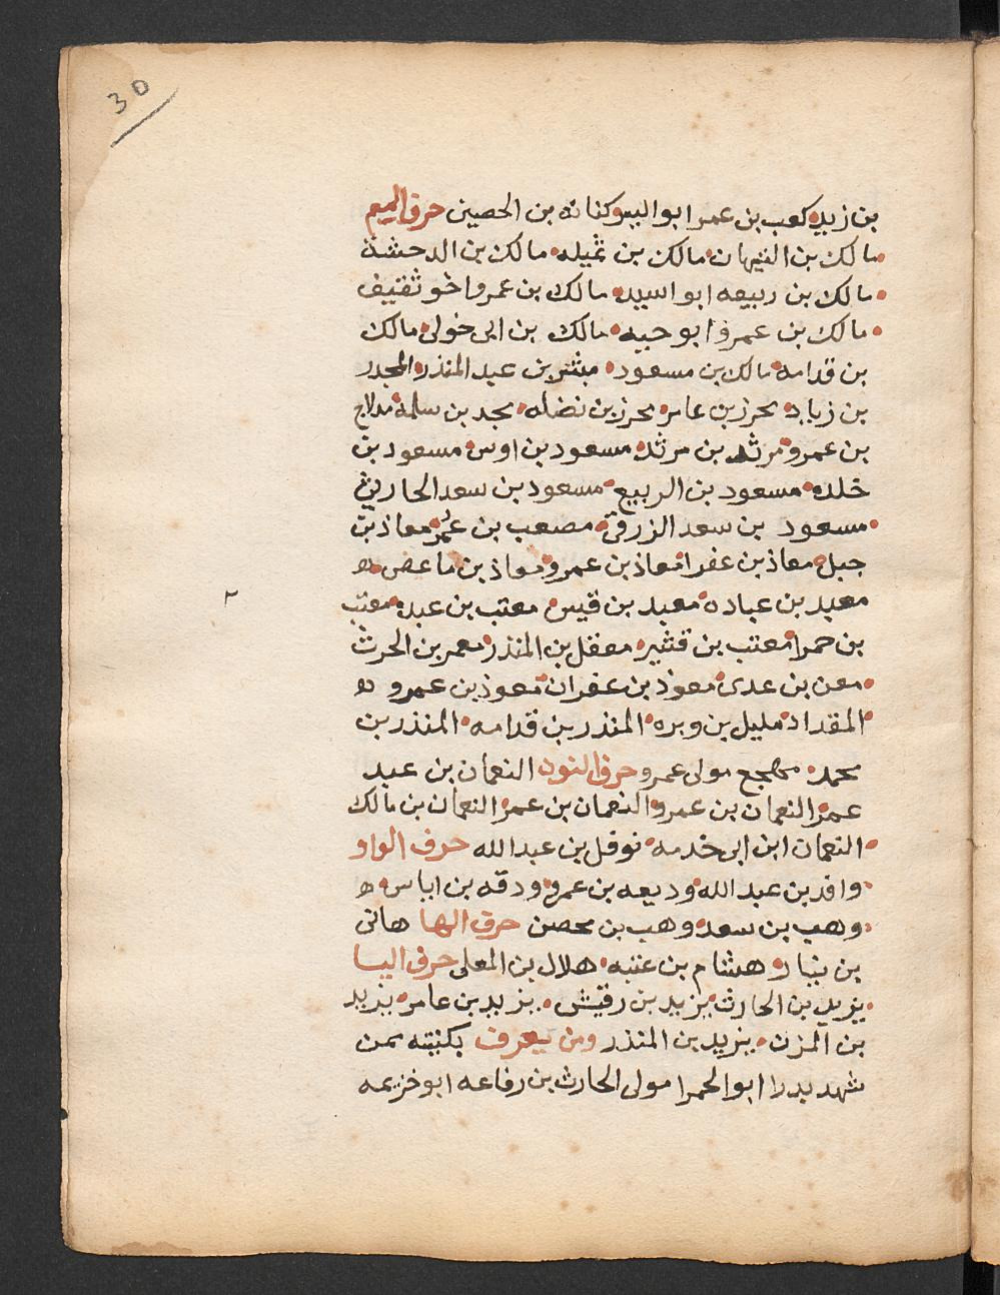 30
بن زيد كعب بن عمرا بو اليسر كنانه بن الحصين حرف الميم
مالك بن التيهان مالك بن ثميله مالك بن الدحشة
مالك بن ربيعه ابو اسيد مالك بن عمرو اخو ثقيف
مالك بن عمرو ابو حبيه مالك بن ابى خولى مالك
بن قدامه مالك بن مسعود مبشر بن عبد المنذر المجدر
بن زياد محرز بن عامر محرز بن نضله مجد بن سلمة مدلاج
بن عمرو مرثد بن مرثد مسعود بن اوس مسعود بن
خلده مسعود بن الربيع مسعود بن سعد الحارثي
مسعود بن سعد الزرقى مصعب بن عمر معاذ بن
جبل معاذ بن عفرا معاذ بن عمرو معاذ بن ماعض ه
معبد بن عباده معبد بن قيس معتب بن عبد معتب
٢
بن حمرا معتب بن قشير معقل بن المنذر معمر بن الحرث
معن بن عدى معوذ بن عفران معوذ بن عمرو ه
المقداد مليل بن وبره المنذر بن قدامه المنذر بن
محمد مهجع مولى عمرو حرف النون النعمان بن عبد
عمرو النعمان بن عمرو النعمان بن عمر النعمان بن مالك
النعمان ابن ابى خدمه نوفل بن عبد الله حرف الواو
وافد بن عبد الله وديعه بن عمرو ودقه بن اياس ه
وهب بن سعد وهب بن محصن حرف الها هانى
بن نيار هشام بن عتبه هلال بن المعلى حرف اليا
يزيد بن الحارث يزيد بن رقيش يزيد بن عامر يزيد
بن المزن يزيد بن المنذر ومن يعرف بكنيته ممن
شهد بدرا ابو الحمرا مولى الحارث بن رفاعه ابو خزيمه